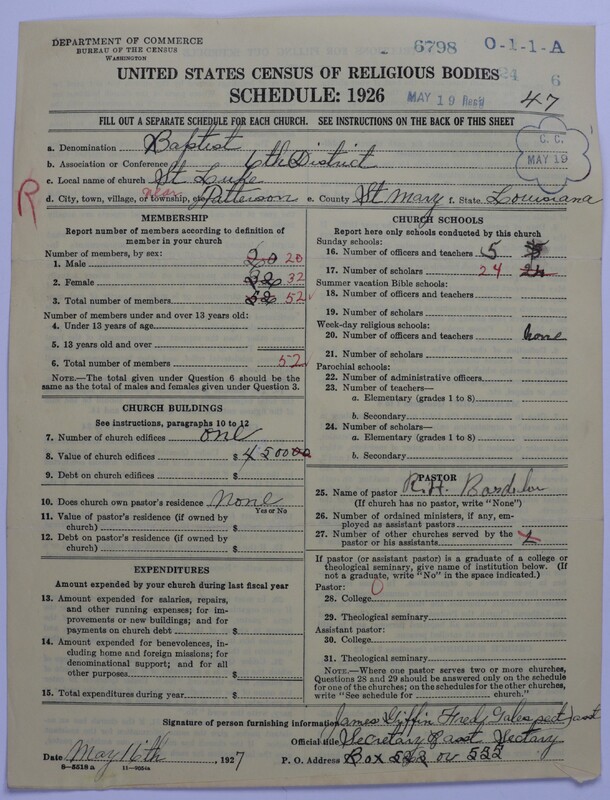 DEPARTMENT OF COMMERCE
BUREAU OF THE CENSUS
WASHINGTON
6798 O-1-1-A
24 6
UNITED STATES CENSUS OF RELIGIOUS BODIES
SCHEDULE: 1926
MAY 19 Rec'd 47
FILL OUT A SEPARATE SCHEDULE FOR EACH CHURCH. SEE INSTRUCTIONS ON THE BACK OF THIS SHEET
C. C.
MAY 19
a. Denomination Baptist
b. Association or Conference 6th District
c. Local name of church St Luke
R
d. City, town, village, or township, etc. near Patterson e. County St Mary f. State Louisiana
MEMBERSHIP
Report number of members according to definition of
member in your church
Number of members, by sex:
1. Male 20 20
2. Female 32 32
3. Total number of members 52 52
Number of members under and over 13 years old:
4. Under 13 years of age
5. 13 years old and over
6. Total number of members 52
NOTE.—The total given under Question 6 should be the
same as the total of males and females given under Question 3.
CHURCH BUILDINGS
See instructions, paragraphs 10 to 12
7. Number of church edifices one
8. Value of church edifices $
9. Debt on church edifices $
10. Does church own pastor's residence None
Yes or No
11. Value of pastor's residence (if owned by
church) $
12. Debt on pastor's residence (if owned by
church) $
EXPENDITURES
Amount expended by your church during last fiscal year
13. Amount expended for salaries, repairs,
and other running expenses; for im-
provements or new buildings; and for
payments on church debt $
14. Amount expended for benevolences, in-
cluding home and foreign missions; for
denominational support; and for all
other purposes $
15. Total expenditures during year $
CHURCH SCHOOLS
Report here only schools conducted by this church
Sunday schools:
16. Number of officers and teachers 5 5
17. Number of scholars 24 24
Summer vacation Bible schools:
18. Number of officers and teachers
19. Number of scholars
Week-day religious schools:
20. Number of officers and teachers none
21. Number of scholars
Parochial schools:
22. Number of administrative officers
23. Number of teachers—
a. Elementary (grades 1 to 8)
b. Secondary
24. Number of scholars—
a. Elementary (grades 1 to 8)
b. Secondary
PASTOR
25. Name of pastor R. H.
(If church has no pastor, write "None")
26. Number of ordained ministers, if any, em-
ployed as assistant pastors
27. Number of other churches served by the
pastor or his assistants
If pastor (or assistant pastor) is a graduate of a college or
theological seminary, give name of institution below. (If
not a graduate, write "No" in the space indicated.)
Pastor:
28. College
29. Theological seminary
Assistant pastor:
30. College
31. Theological seminary
NOTE.—Where one pastor serves two or more churches,
Questions 28 and 29 should be answered only on the schedule
for one of the churches; on the schedules for the other churches,
write "See schedule for church."
Signature of person furnishing information James Giffin Fred
Official title Secretary
Date May 16th, 1927 P. O. Address Box 522 or 522
8-5518 a